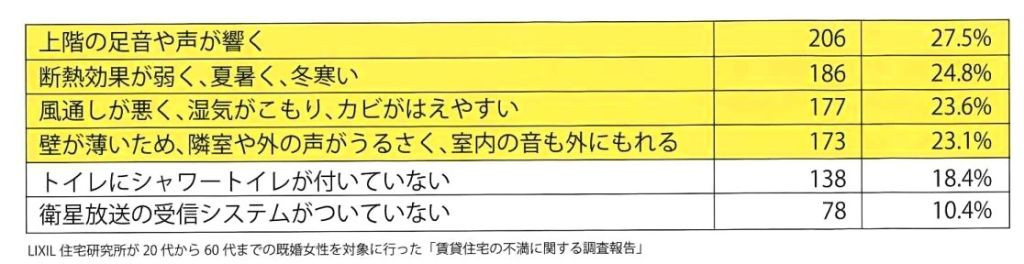 上階の足音や声が響く 206 27.5%
断熱効果が弱く、夏暑く、冬寒い 186 24.8%
風通しが悪く、湿気がこもり、カビがはえやすい 177 23.6%
壁が薄いため、隣室や外の声がうるさく、室内の音も外にもれる 173 23.1%
トイレにシャワートイレが付いていない 138 18.4%
衛星放送の受信システムがついていない 78 10.4%
LIXIL 住宅研究所が 20 代から 60 代までの既婚女性を対象に行った「賃貸住宅の不満に関する調査報告」